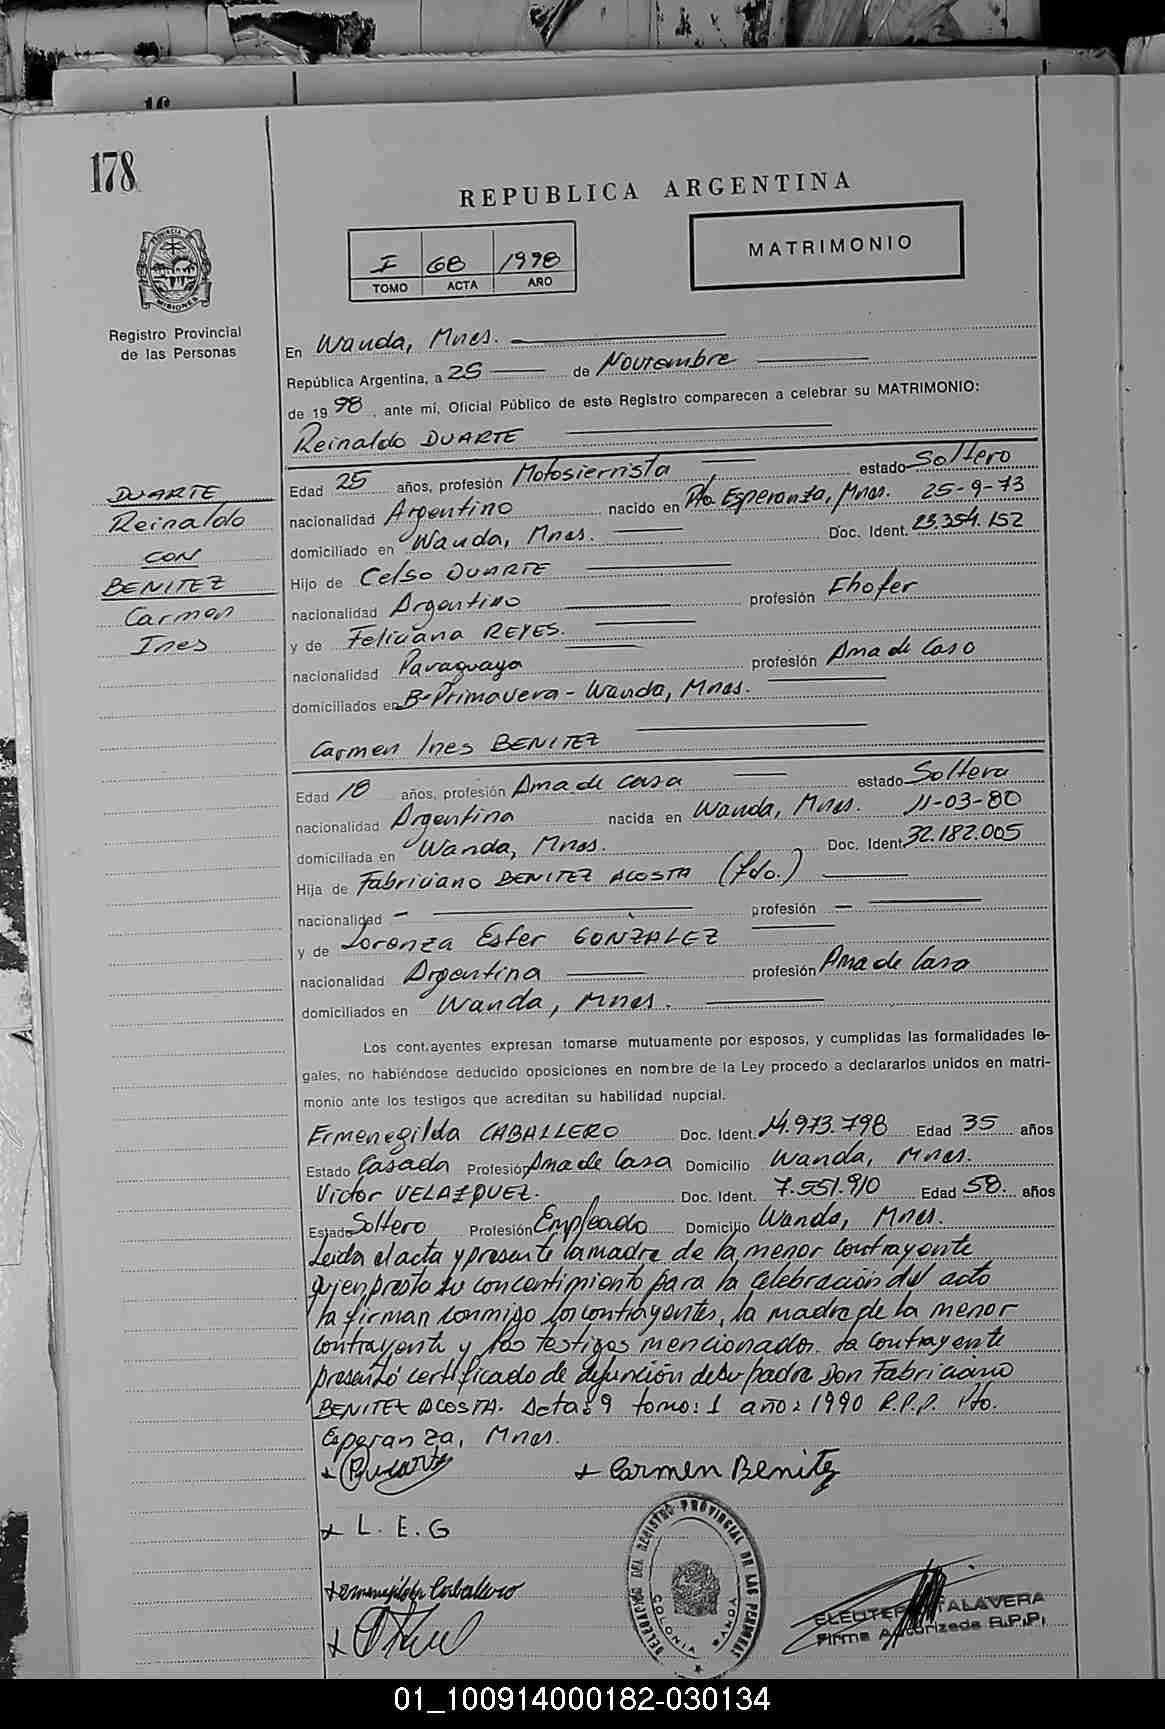 16
178
REPUBLICA ARGENTINA
I 68 1998
TOMO ACTA AÑO
MATRIMONIO
PROVINCIA
MISIONES
Registro Provincial
de las Personas
DUARTE
Reinaldo
CON
BENITEZ
Carmen
Ines
En Wanda, Mnes.
República Argentina, a 25 de Noviembre
de 1998, ante mí, Oficial Público de este Registro comparecen a celebrar su MATRIMONIO:
Reinaldo DUARTE
Edad 25 años, profesión Motosierrista estado Soltero
nacionalidad Argentino nacido en Pto Esperanza, Mnes. 25-9-73
domiciliado en Wanda, Mnes. Doc. Ident. 23.354.152
Hijo de Celso DUARTE
nacionalidad Argentino profesión Chofer
y de Feliciana REYES.
nacionalidad Paraguaya profesión Ama de Casa
domiciliados en Bº Primavera - Wanda, Mnes.
Carmen Ines BENITEZ
Edad 18 años, profesión Ama de casa estado Soltera
nacionalidad Argentina nacida en Wanda, Mnes. 11-03-80
domiciliada en Wanda, Mnes. Doc. Ident. 32.182.005
Hija de Fabriciano BENITEZ ACOSTA (fdo.)
nacionalidad - profesión -
y de Lorenza Ester GONZALEZ
nacionalidad Argentina profesión Ama de Casa
domiciliados en Wanda, Mnes.
Los cont.ayentes expresan tomarse mutuamente por esposos, y cumplidas las formalidades le-
gales, no habiéndose deducido oposiciones en nombre de la Ley procedo a declararlos unidos en matri-
monio ante los testigos que acreditan su habilidad nupcial.
Ermenegilda CABALLERO Doc. Ident. 14.973.798 Edad 35 años
Estado Casada Profesión Ama de Casa Domicilio Wanda, Mnes.
Victor VELAZQUEZ. Doc. Ident. 7.551.910 Edad 50. años
Estado Soltero Profesión Empleado Domicilio Wanda, Mnes.
Leida el acta y presente la madre de la menor contrayente
quien presto su concentimiento para la celebración del acto
la firman conmigo los contrayentes, la madre de la menor
contrayente y los testigos mencionados. La contrayente
presentó certificado de defunción de su padre Don Fabriciano
BENITEZ ACOSTA. Acta: 9 tomo: 1 año: 1990 R.P.P. Pto.
Esperanza, Mnes.
+ RDuarte + Carmen Benitez
+ L. E. G
+ Ermenegilda Caballero
+
DELEGACION DEL REGISTRO PROVINCIAL DE LAS PERSONAS
COLONIA WANDA
TALAVERA
Firma Autorizada R.P.P.
01_100914000182-030134